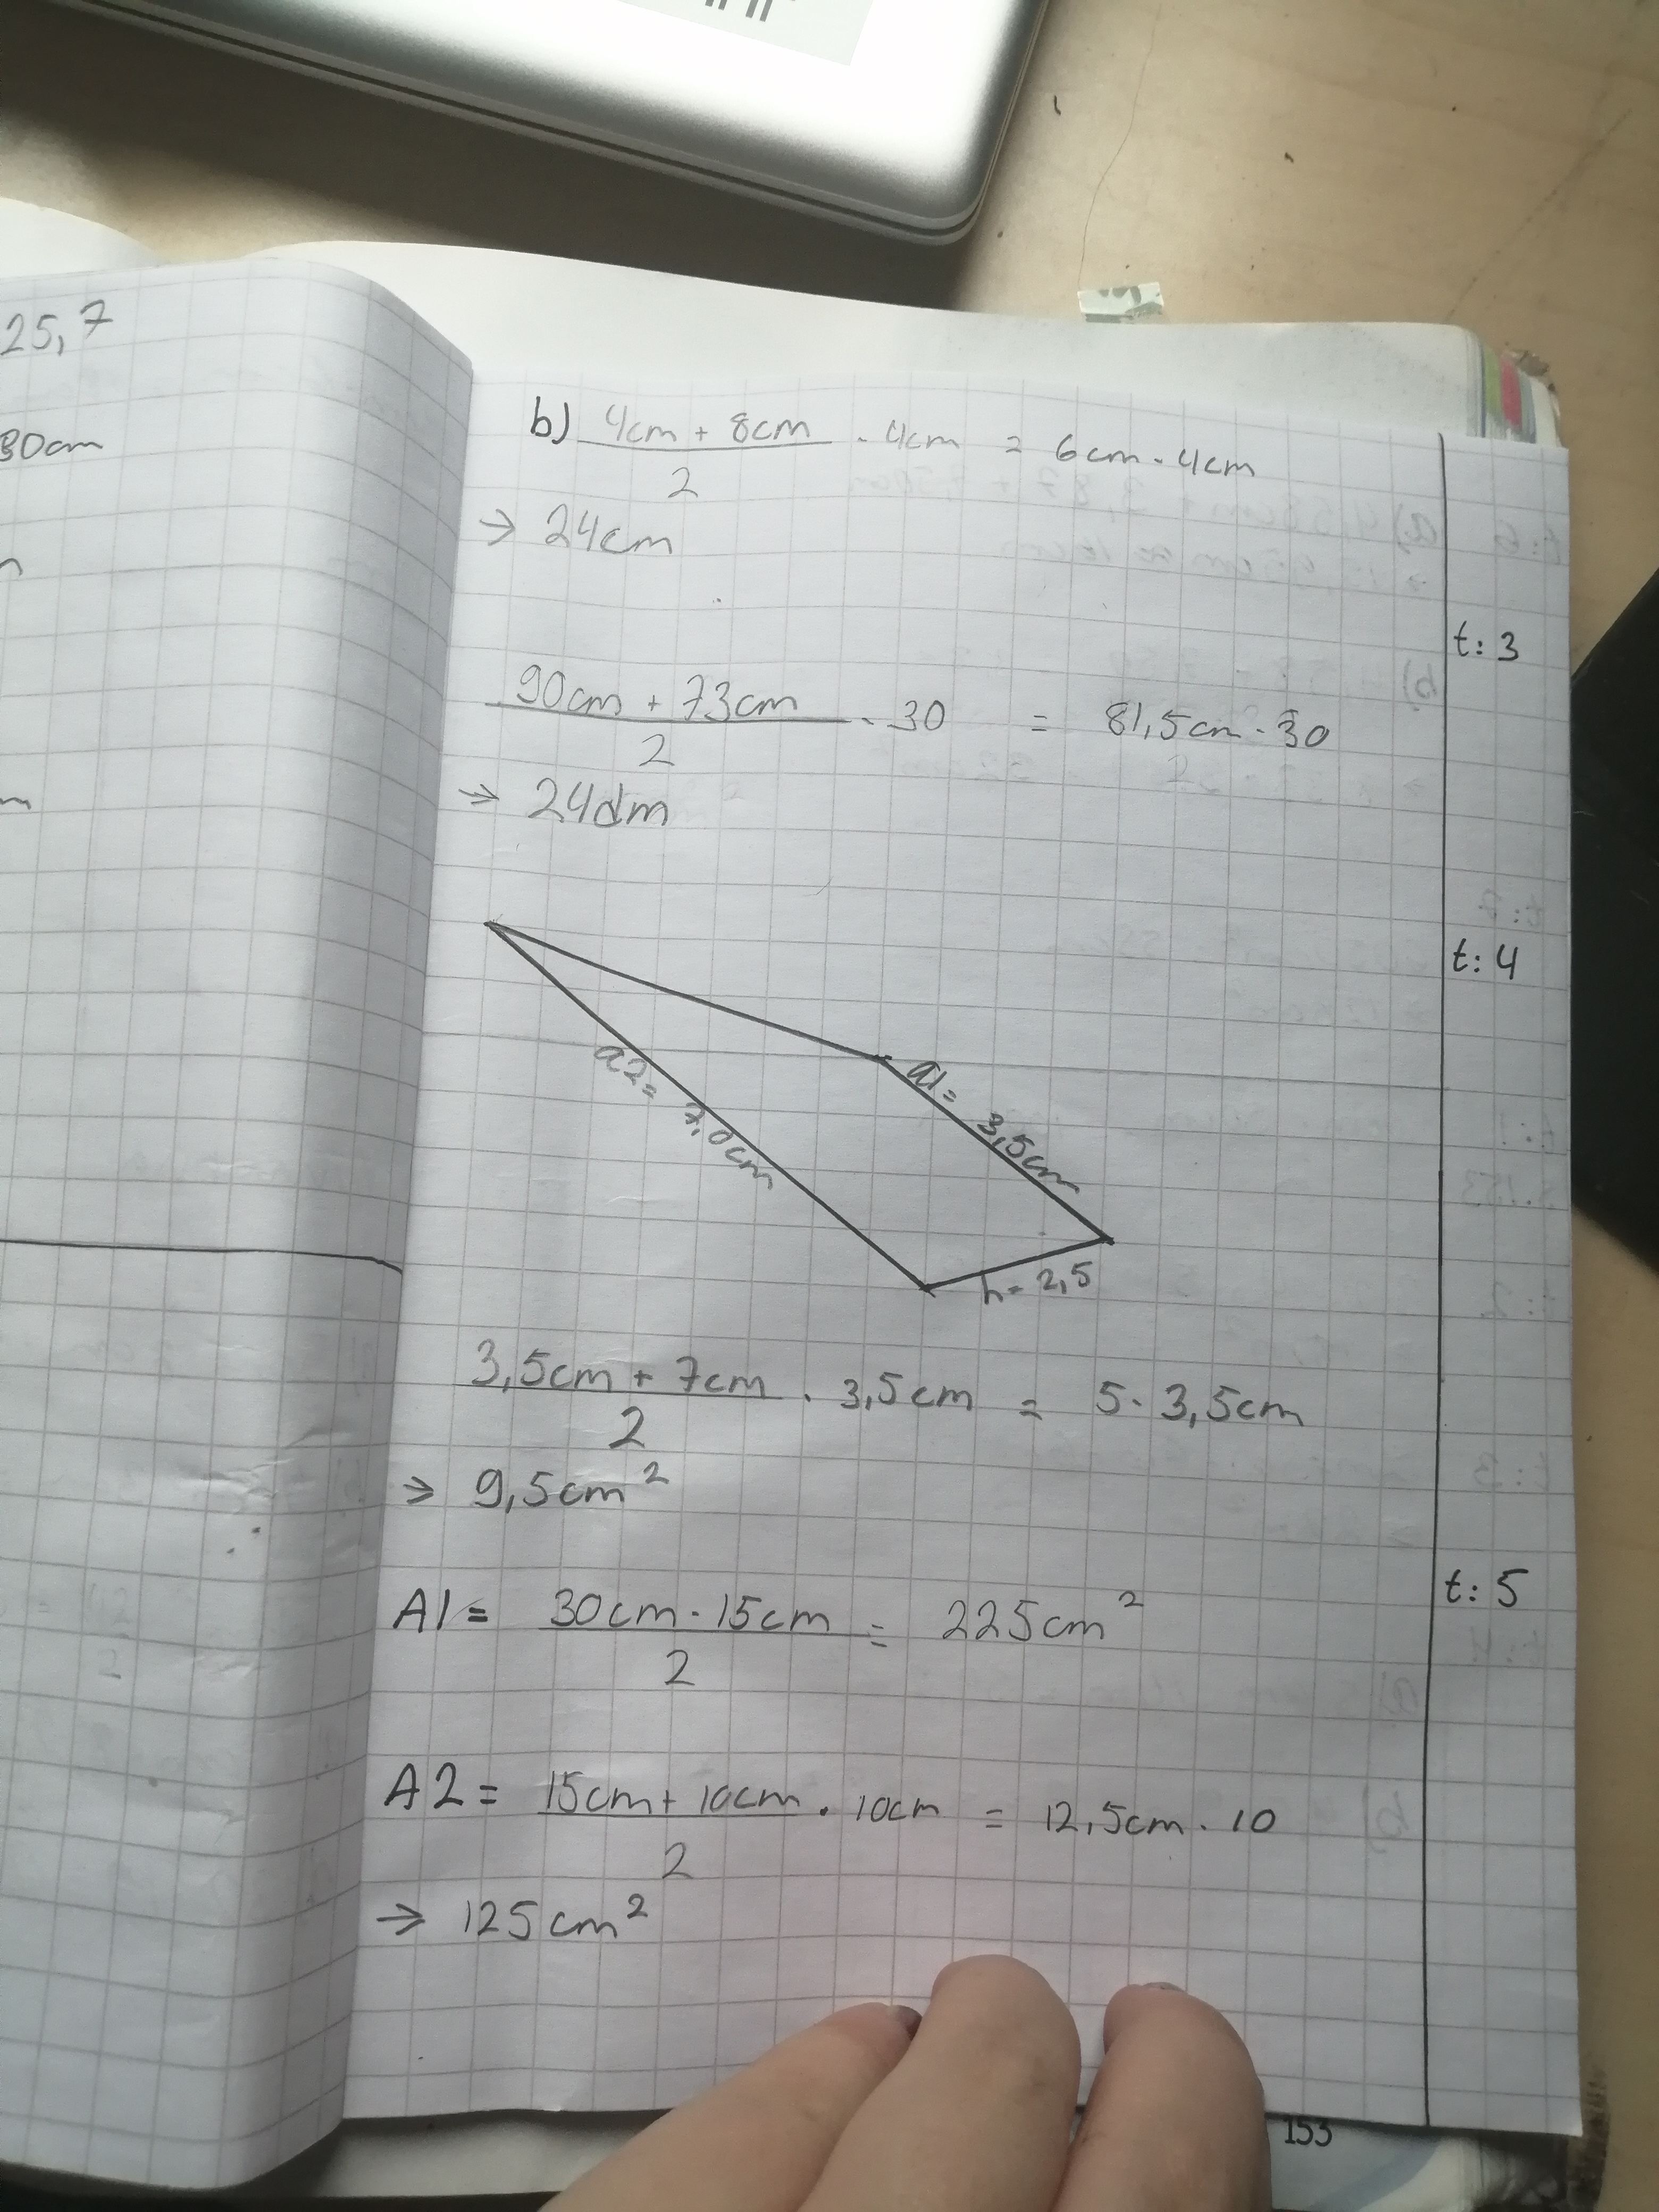 25,7
30cm
b) 4cm + 8cm / 2 · 4cm = 6cm · 4cm
→ 24cm
t: 3
90cm + 73cm / 2 · 30 = 81,5cm · 30
→ 24dm
t: 4
a2= 7,0cm
a1= 3,5cm
h= 2,5
3,5cm + 7cm / 2 · 3,5cm = 5 · 3,5cm
→ 9,5cm²
t: 5
A1= 30cm · 15cm / 2 = 225cm²
A2= 15cm + 10cm / 2 · 10cm = 12,5cm · 10
→ 125cm²
153